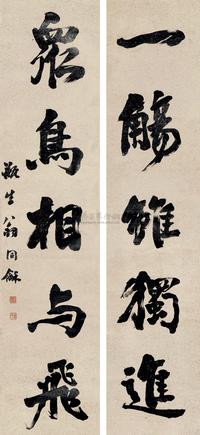 一觴雖獨進
衆鳥相与飛
瓶生翁同龢